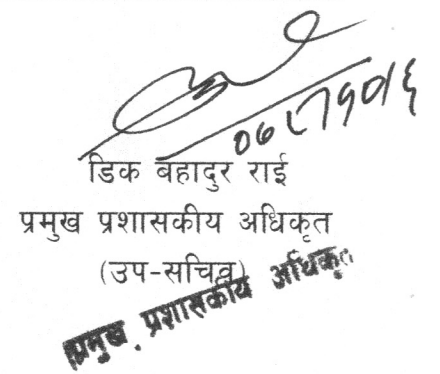 डिक बहादुर राई
प्रमुख प्रशासकीय अधिकृत
(उप-सचिव)
प्रमुख प्रशासकीय अधिकृत